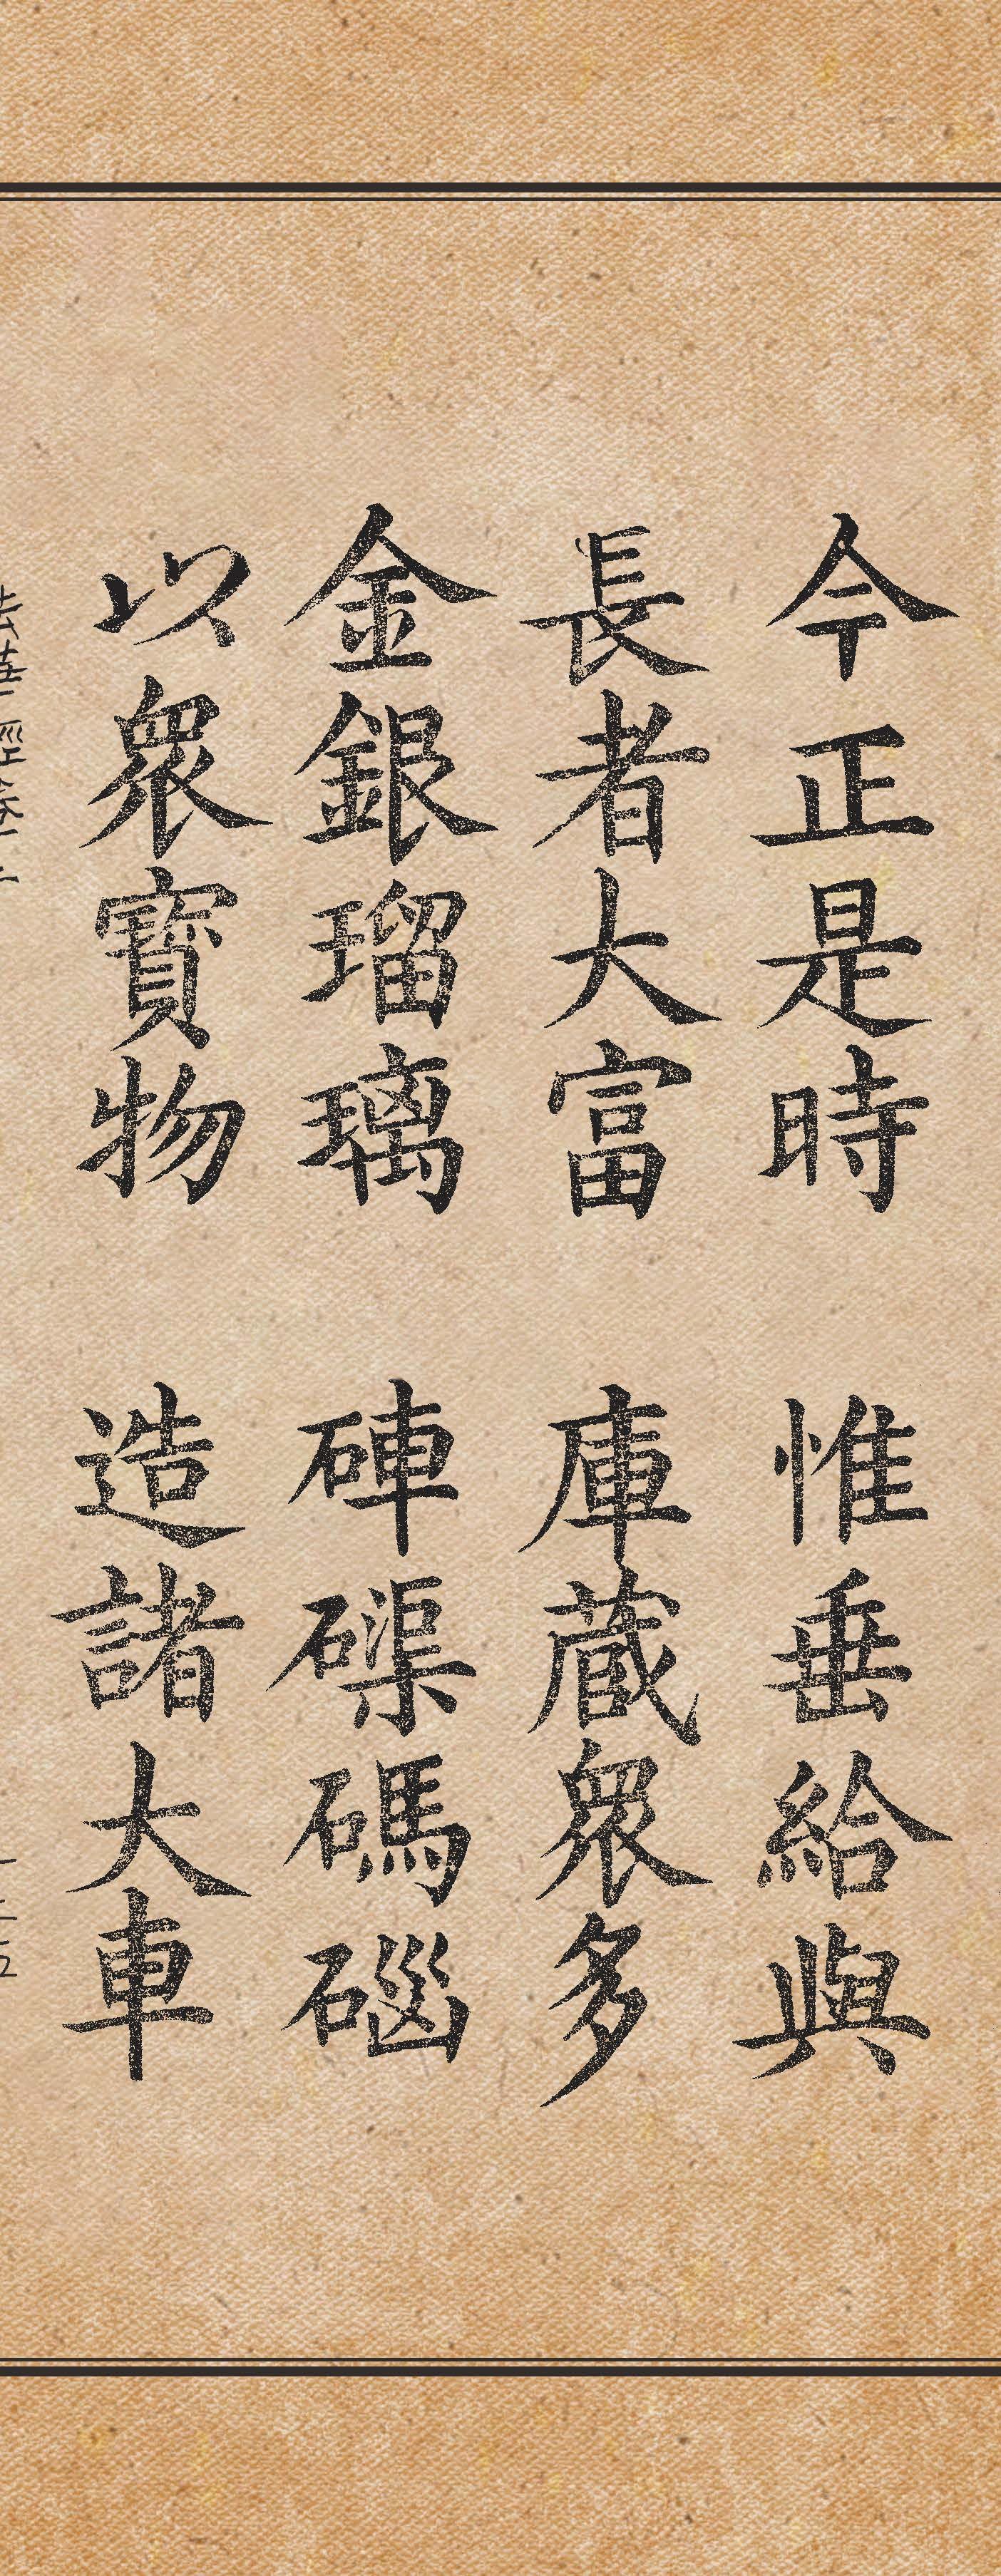 今正是時 惟垂給與
長者大富 庫蔵衆多
金銀瑠璃 硨磲碼碯
以衆寶物 造諸大車